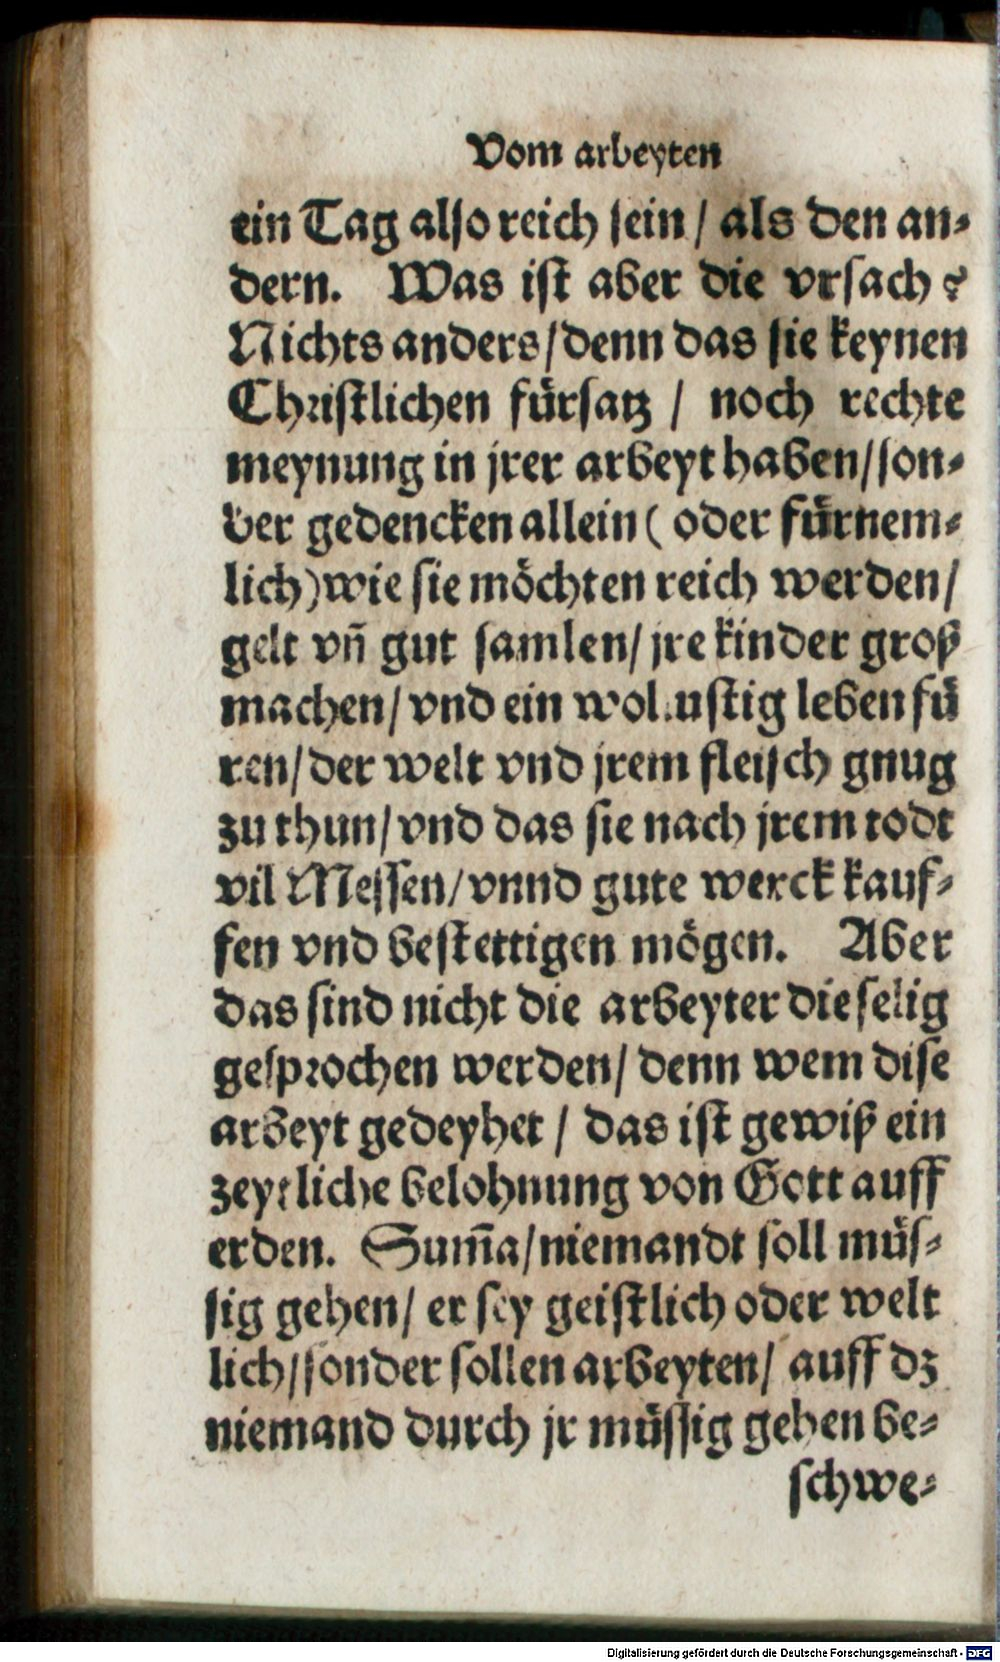 Vom arbeyten
ein Tag also reich sein / als den an⸗
dern. Was ist aber die vrsach ?
Nichts anders / denn das sie keynen
Christlichen fürsatz / noch rechte
meynung in jrer arbeyt haben / son⸗
der gedencken allein ( oder fürnem⸗
lich ) wie sie möchten reich werden /
gelt vñ gut samlen / jre kinder groß
machen / vnd ein wollustig leben fü
ren / der welt vnd jrem fleisch gnug
zu thun / vnd das sie nach jrem todt
vil Messen / vnnd gute werck kauf⸗
fen vnd bestettigen mögen. Aber
das sind nicht die arbeyter die selig
gesprochen werden / denn wem dise
arbeyt gedeyhet / das ist gewiß ein
zeytliche belohnung von Gott auff
erden. Sum̄a / niemandt soll müs⸗
sig gehen / er sey geistlich oder welt
lich / sonder sollen arbeyten / auff dz
niemand durch jr müssig gehen be⸗
schwe⸗
Digitalisierung gefördert durch die Deutsche Forschungsgemeinschaft - DFG